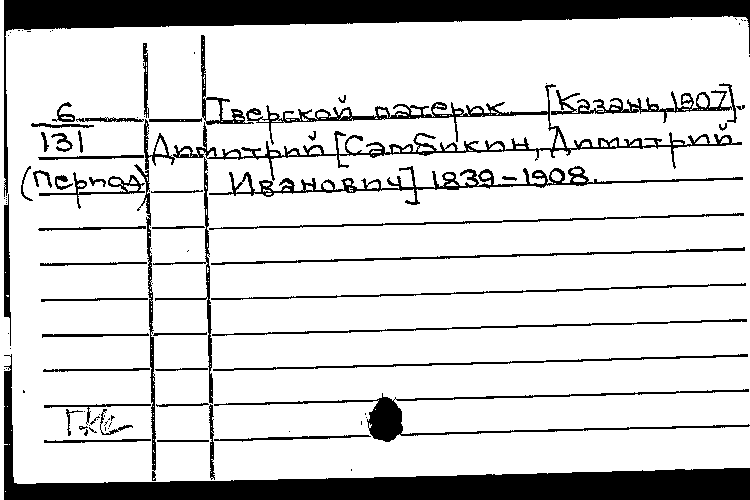 6 Тверской патерик [Казань, 1907].
131 Димитрий [Самбикин, Димитрий
(Период) Иванович] 1839-1908.